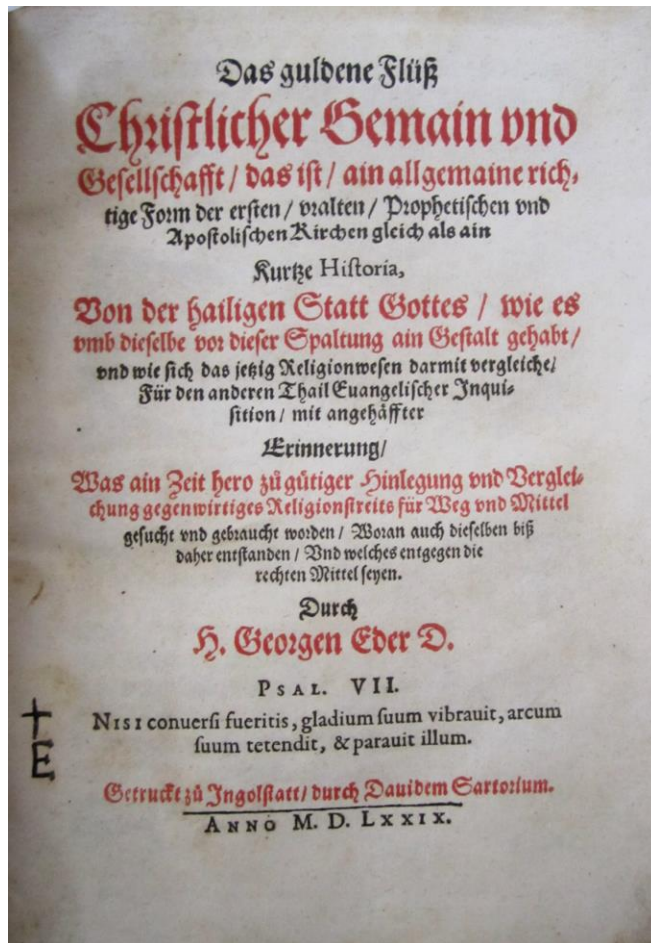 Das guldene Flüß
Christlicher Gemain vnd
Gesellschafft / das ist / ain allgemaine rich-
tige Form der ersten / vralten / Prophetischen vnd
Apostolischen Kirchen gleich als ain
Kurtze Historia,
Von der hailigen Statt Gottes / wie es
vmb dieselbe vor dieser Spaltung ain Gestalt gehabt /
vnd wie sich das jetzig Religionwesen darmit vergleiche /
Für den anderen Thail Euangelischer Inqui-
sition / mit angehäffter
Erinnerung /
Was ain Zeit hero zů gůtiger Hinlegung vnd Verglei-
chung gegenwirtiges Religionstreits für Weg vnd Mittel
gesucht vnd gebraucht worden / Woran auch dieselben biß
daher entstanden / Vnd welches entgegen die
rechten Mittel seyen.
Durch
H. Georgen Eder D.
PSAL. VII.
NISI conuersi fueritis, gladium suum vibrauit, arcum
suum tetendit, & parauit illum.
Getruckt zů Ingolstatt / durch Dauidem Sartorium.
ANNO M. D. LXXIX.
E